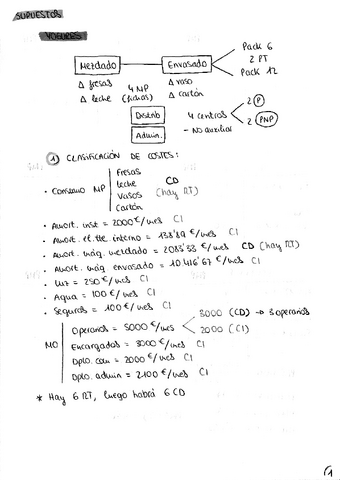 SUPUESTOS
YOGURES
Mezclado
Envasado
Pack 6
2 PT
Pack 12
Δ fresas
Δ leche
4 MP
(fichas)
Δ vaso
Δ cartón
Distrib
Admin.
4 centros
2 P
2 PNP
- No auxiliar
① CLASIFICACIÓN DE COSTES:
· Consumo MP
Fresas
leche
Vasos
Cartón
CD
(hay RT)
· Amort. inst = 2000€/mes CI
· Amort. el. tte. interno = 138'89 €/mes CI
· Amort. máq. mezclado = 2083'33 €/mes CD (hay RT)
· Amort. máq. envasado = 10416'67 €/mes CI
· Luz = 250 €/mes CI
· Agua = 100 €/mes CI
· Seguros = 100 €/mes CI
MO
Operarios = 5000 €/mes
3000 (CD) → 3 operarios
2000 (CI)
Encargados = 3000 €/mes CI
Dpto. com = 2000 €/mes CI
Dpto. admin = 2100 €/mes CI
* Hay 6 RT, luego habrá 6 CD
1